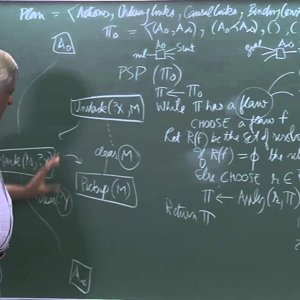 Plan = {Actions, Ordering Links, Causal Links, Binding Const
Π₀ = {A₀, A∞}, (A₀ < A∞), {}, {
A₀
null Start
goal
PSP (Π₀
Π ← Π₀
While Π has a flaw
CHOOSE a flaw f
Let R(f) be the set of
if R(f) = ϕ the
Else CHOOSE r ∈
Π ← Apply(r, Π
Return Π
Unstack(?x, M
clear(M)
Pickup(M)
Stack(N, ?
A∞